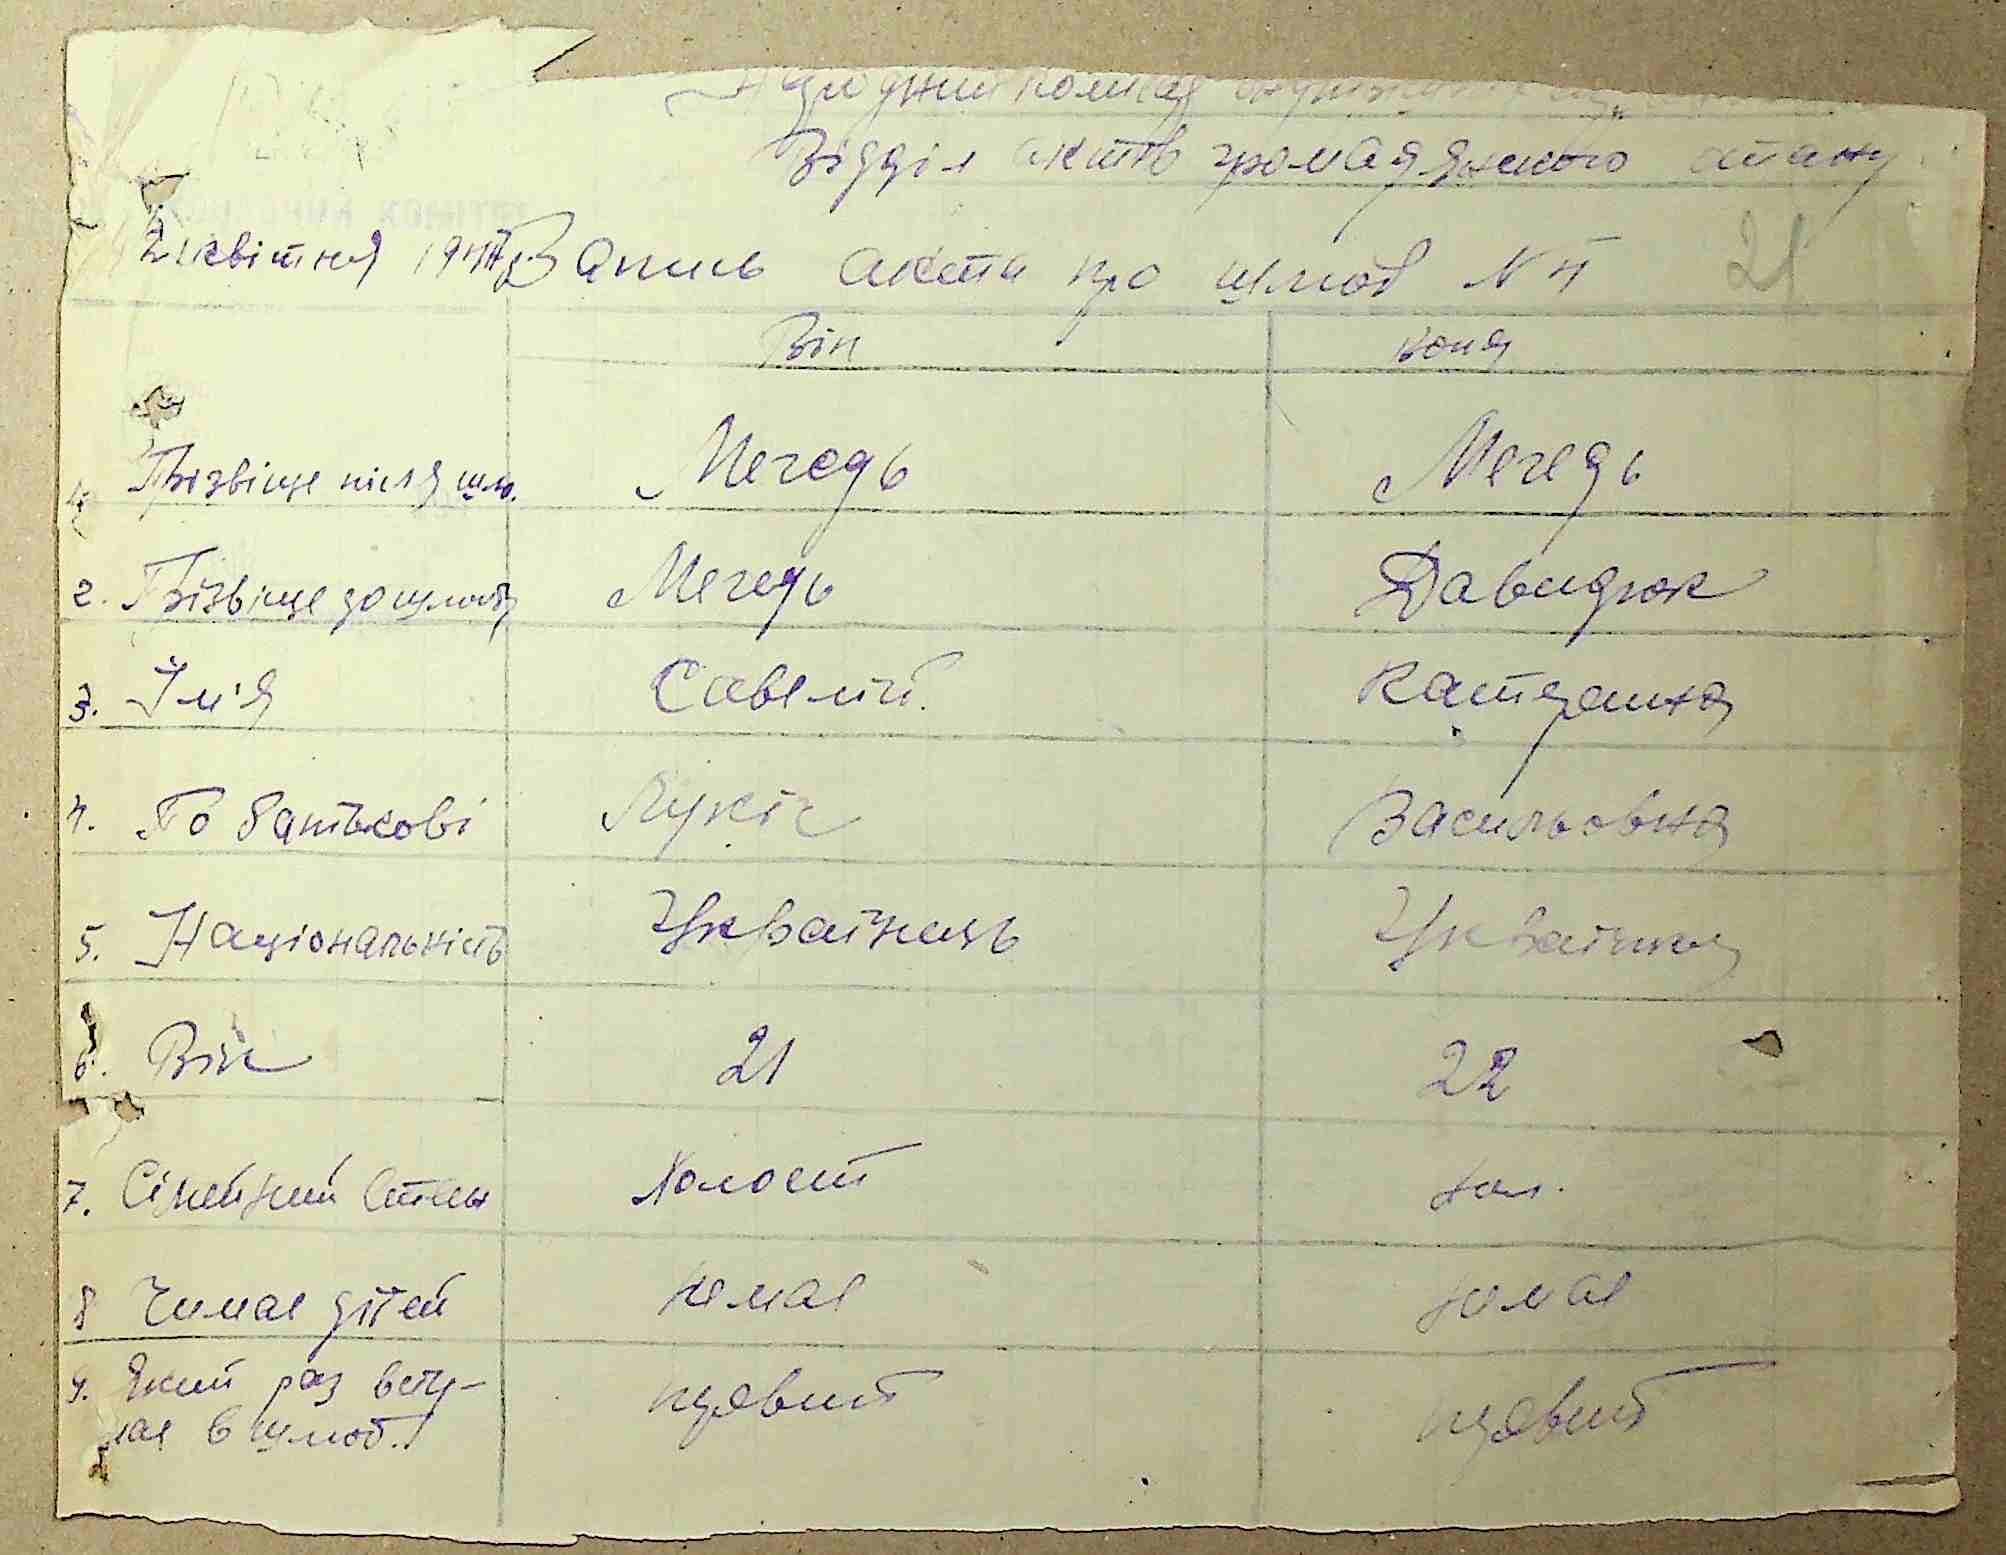 Відділ актів громадянского стану
2 квітня 1944 р. Запись акта про шлюб N 4 21
Він вона
1. Прізвіще після шлю. Мегедь Мегедь
2. Прізвіще до шлюбу Мегедь Давидюк
3. Ім'я Савелій. Катерина
4. По батькові Лукіч Васильовна
5. Національність Українець Українка
6. Вік 21 22
7. Сімейний стан Холост хол.
8 Чи має дітей немає немає
9. Який раз всту-
пає в шлюб. первий первий